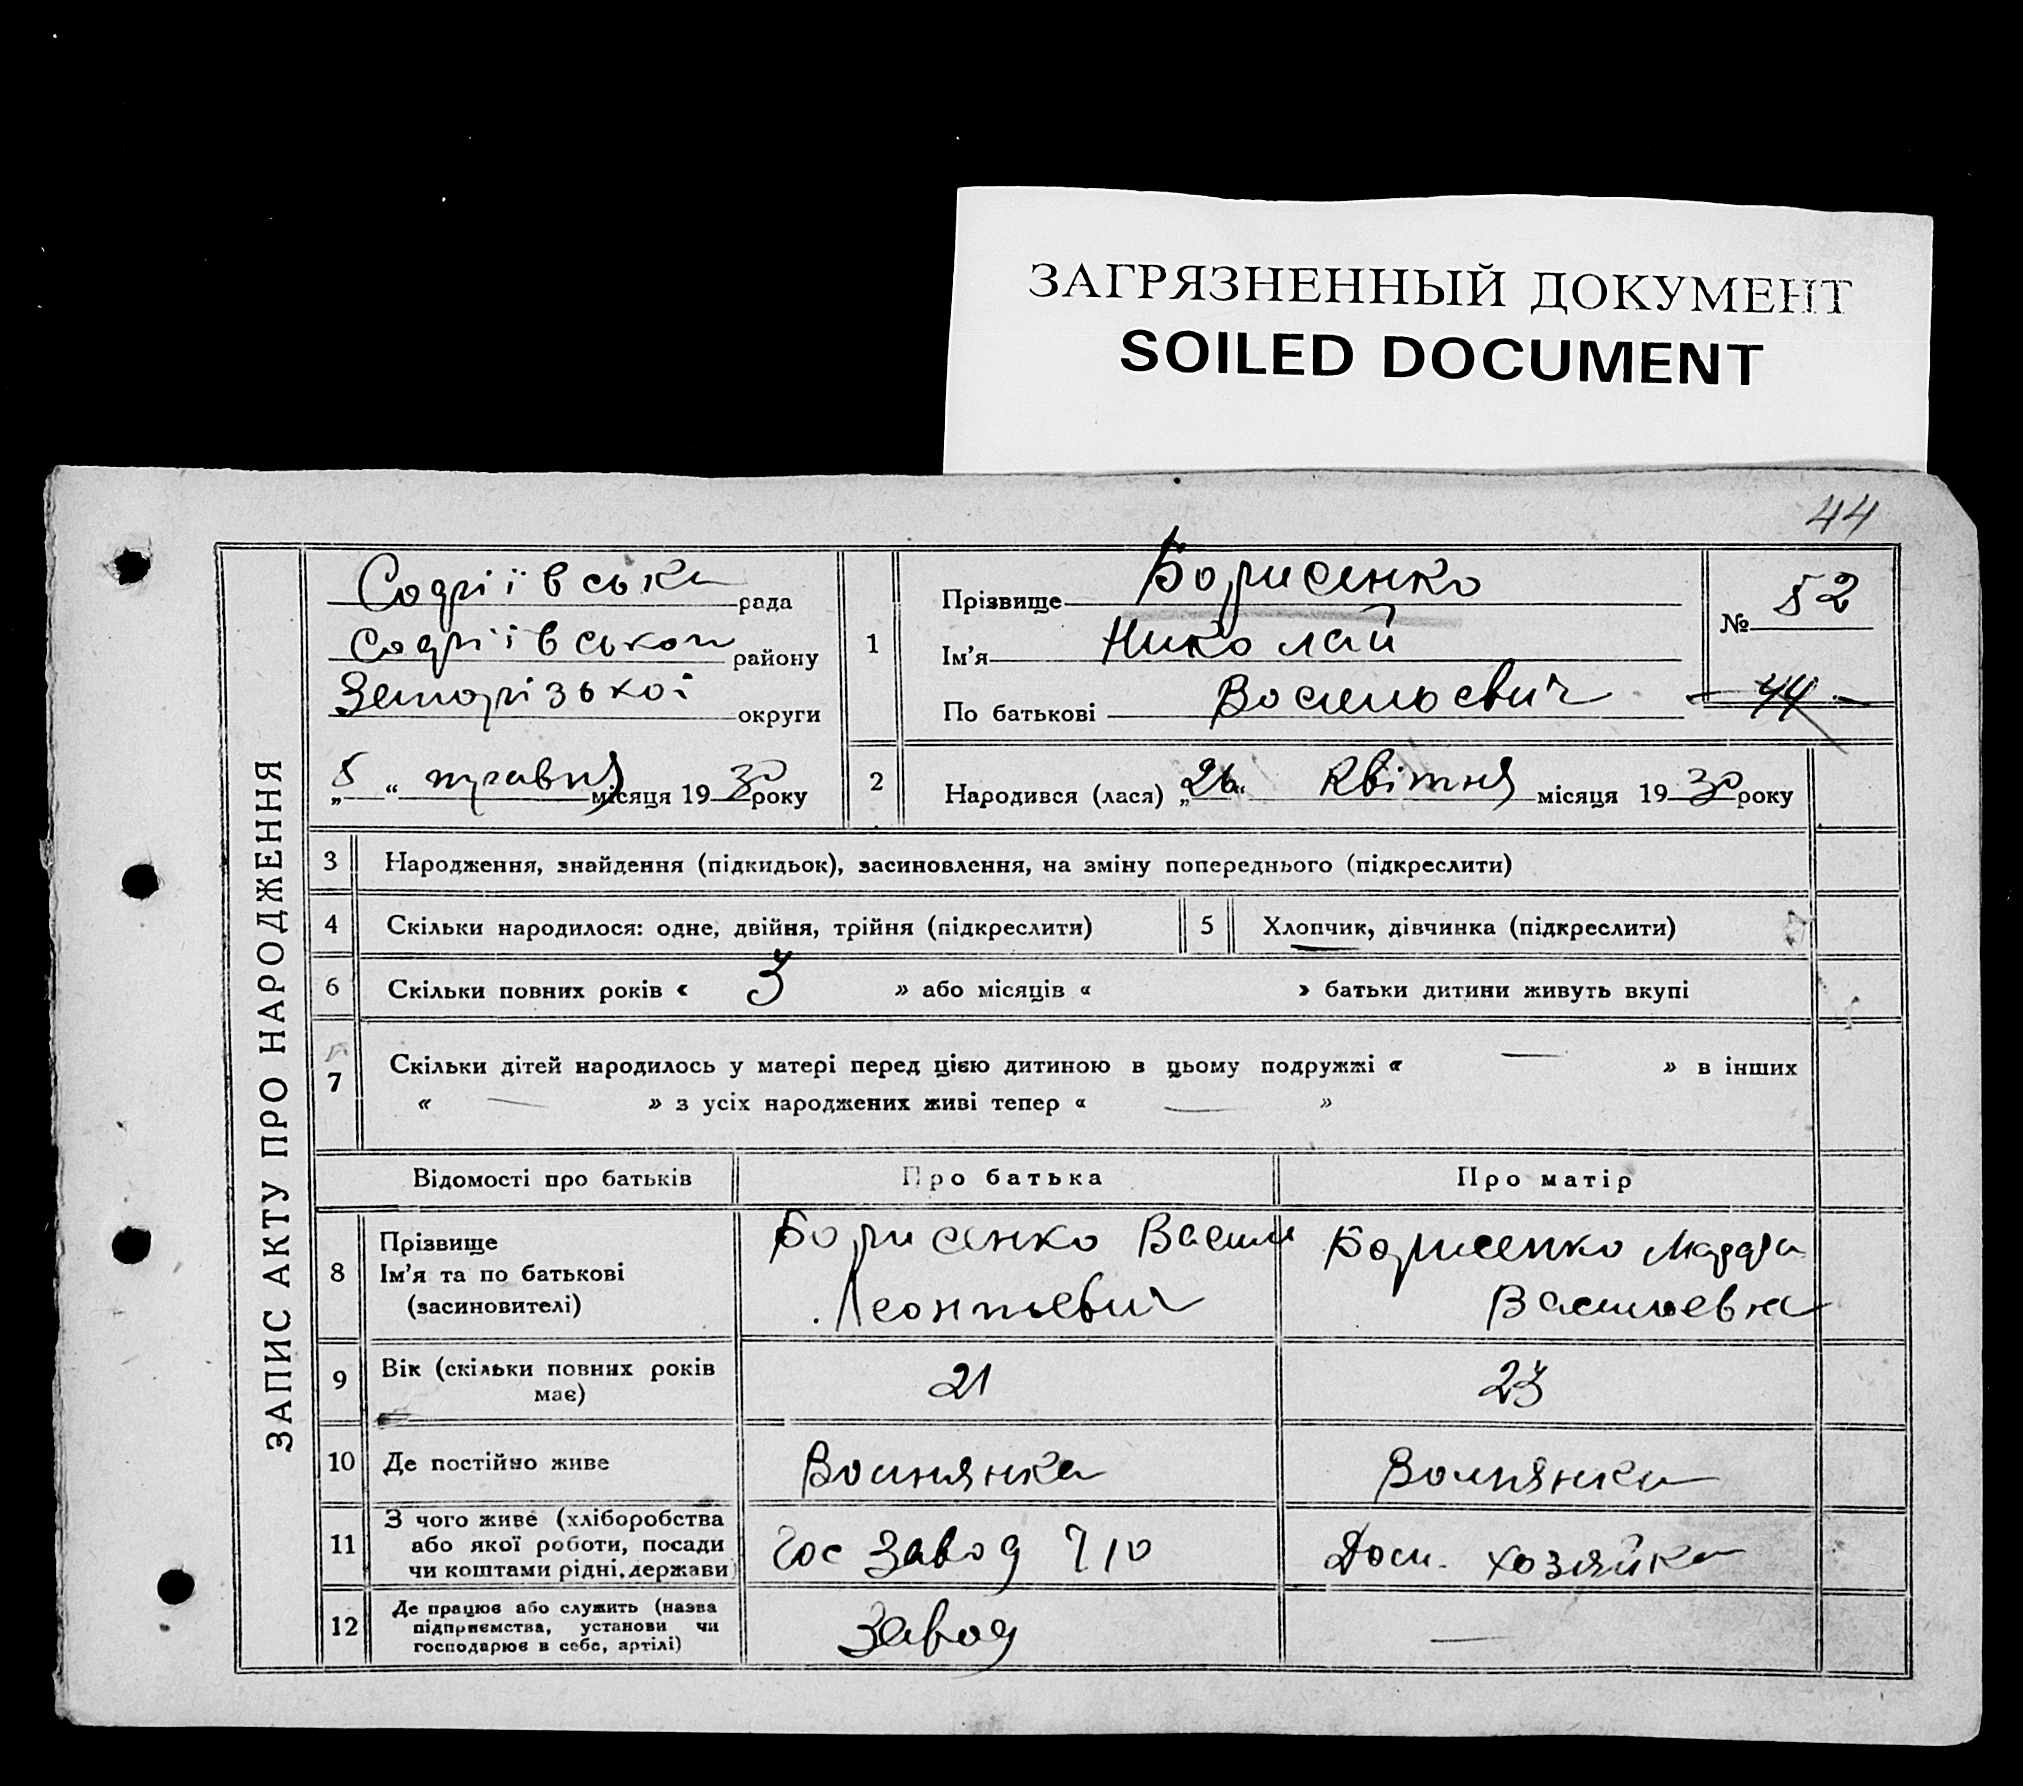 ЗАГРЯЗНЕННЫЙ ДОКУМЕНТ
SOILED DOCUMENT
44
ЗАПИС АКТУ ПРО НАРОДЖЕННЯ
Софіївська рада
Софіївської району
Запорізької округи
„5“ травня місяця 1930 року
1
Прізвище Борисенко
Ім'я Николай
По батькові Васильевич
№ 52
44
2
Народився (лася) „26“ квітня місяця 1930 року
3 Народження, знайдення (підкидьок), засиновлення, на зміну попереднього (підкреслити)
4 Скільки народилося: одне, двійня, трійня (підкреслити) 5 Хлопчик, дівчинка (підкреслити)
6 Скільки повних років « 3 » або місяців « » батьки дитини живуть вкупі
7 Скільки дітей народилось у матері перед цією дитиною в цьому подружжі « — » в інших
« — » з усіх народжених живі тепер « — »
Відомості про батьків Про батька Про матір
8 Прізвище
Ім'я та по батькові
(засиновителі)
Борисенко Васили
Леонтьевич
Борисенко
Васильевна
9 Вік (скільки повних років
має)
21 23
10 Де постійно живе
11 З чого живе (хліборобства
або якої роботи, посади
чи коштами рідні, держави)
Гос завод 710 Дом. хозяйка
12 Де працює або служить (назва
підприємства, установи чи
господарює в себе, артілі)
Завод —